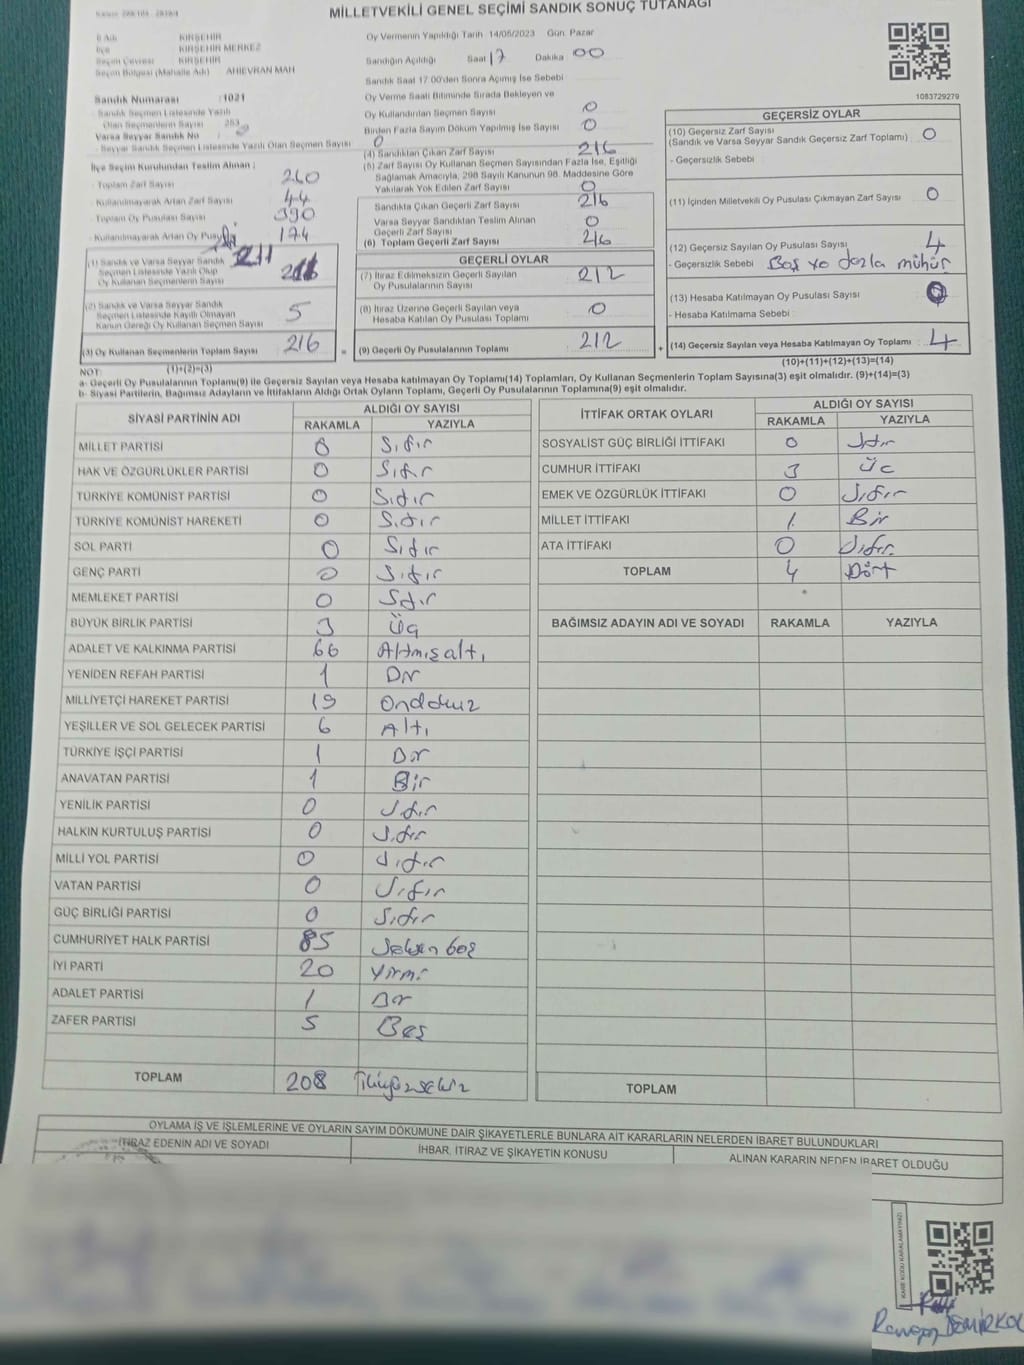 MİLLETVEKİLİ GENEL SEÇİMİ SANDIK SONUÇ TUTANAĞI
İl Adı KIRŞEHİR
İlçe KIRŞEHİR MERKEZ
Seçim Çevresi KIRŞEHİR
Seçim Bölgesi (Mahalle Adı) AHİEVRAN MAH
Sandık Numarası :1021
- Sandık Seçmen Listesinde Yazılı
Olan Seçmenlerin Sayısı 253
Varsa Seyyar Sandık No
- Seyyar Sandık Seçmen Listesinde Yazılı Olan Seçmen Sayısı 0
İlçe Seçim Kurulundan Teslim Alınan :
- Toplam Zarf Sayısı 260
- Kullanılmayarak Artan Zarf Sayısı 44
- Toplam Oy Pusulası Sayısı 390
- Kullanılmayarak Artan Oy 174
(1) Sandık ve Varsa Seyyar Sandık
Seçmen Listesinde Yazılı Olup
Oy Kullanan Seçmenlerin Sayısı 211
(2) Sandık ve Varsa Seyyar Sandık
Seçmen Listesinde Kayıtlı Olmayan
Kanun Gereği Oy Kullanan Seçmen Sayısı 5
(3) Oy Kullanan Seçmenlerin Toplam Sayısı 216
Oy Vermenin Yapıldığı Tarih 14/05/2023 Gün Pazar
Sandığın Açıldığı Saat 17 Dakika 00
Sandık Saat 17:00'den Sonra Açımış İse Sebebi
Oy Verme Saati Bitiminde Sırada Bekleyen ve
Oy Kullandırılan Seçmen Sayısı 0
Birden Fazla Sayım Döküm Yapılmış İse Sayısı 0
(4) Sandıktan Çıkan Zarf Sayısı 216
(5) Zarf Sayısı Oy Kullanan Seçmen Sayısından Fazla İse, Eşitliği
Sağlamak Amacıyla, 298 Sayılı Kanunun 98. Maddesine Göre
Yakılarak Yok Edilen Zarf Sayısı 0
Sandıkta Çıkan Geçerli Zarf Sayısı 216
Varsa Seyyar Sandıktan Teslim Alınan
Geçerli Zarf Sayısı 0
(6) Toplam Geçerli Zarf Sayısı 216
GEÇERLİ OYLAR
(7) İtiraz Edilmeksizin Geçerli Sayılan
Oy Pusulalarının Sayısı 212
(8) İtiraz Üzerine Geçerli Sayılan veya
Hesaba Katılan Oy Pusulası Toplamı 0
= (9) Geçerli Oy Pusulalarının Toplamı 212
1083729279
GEÇERSİZ OYLAR
(10) Geçersiz Zarf Sayısı
(Sandık ve Varsa Seyyar Sandık Geçersiz Zarf Toplamı) 0
- Geçersizlik Sebebi
(11) İçinden Milletvekili Oy Pusulası Çıkmayan Zarf Sayısı 0
(12) Geçersiz Sayılan Oy Pusulası Sayısı 4
- Geçersizlik Sebebi Boş ve fazla mühür
(13) Hesaba Katılmayan Oy Pusulası Sayısı 0
- Hesaba Katılmama Sebebi
+ (14) Geçersiz Sayılan veya Hesaba Katılmayan Oy Toplamı 4
NOT: (1)+(2)=(3)
(10)+(11)+(12)+(13)=(14)
a- Geçerli Oy Pusulalarının Toplamı(9) ile Geçersiz Sayılan veya Hesaba katılmayan Oy Toplamı(14) Toplamları, Oy Kullanan Seçmenlerin Toplam Sayısına(3) eşit olmalıdır. (9)+(14)=(3)
b- Siyasi Partilerin, Bağımsız Adayların ve İttifakların Aldığı Ortak Oyların Toplamı, Geçerli Oy Pusulalarının Toplamına(9) eşit olmalıdır.
SİYASİ PARTİNİN ADI ALDIĞI OY SAYISI
RAKAMLA YAZIYLA
MİLLET PARTİSİ 0 Sıfır
HAK VE ÖZGÜRLÜKLER PARTİSİ 0 Sıfır
TÜRKİYE KOMÜNİST PARTİSİ 0 Sıfır
TÜRKİYE KOMÜNİST HAREKETİ 0 Sıfır
SOL PARTİ 0 Sıfır
GENÇ PARTİ 0 Sıfır
MEMLEKET PARTİSİ 0 Sıfır
BÜYÜK BİRLİK PARTİSİ 3 Üç
ADALET VE KALKINMA PARTİSİ 66 Altmışaltı
YENİDEN REFAH PARTİSİ 1 Bir
MİLLİYETÇİ HAREKET PARTİSİ 19 Ondokuz
YEŞİLLER VE SOL GELECEK PARTİSİ 6 Altı
TÜRKİYE İŞÇİ PARTİSİ 1 Bir
ANAVATAN PARTİSİ 1 Bir
YENİLİK PARTİSİ 0 Sıfır
HALKIN KURTULUŞ PARTİSİ 0 Sıfır
MİLLİ YOL PARTİSİ 0 Sıfır
VATAN PARTİSİ 0 Sıfır
GÜÇ BİRLİĞİ PARTİSİ 0 Sıfır
CUMHURİYET HALK PARTİSİ 85 Seksen beş
İYİ PARTİ 20 Yirmi
ADALET PARTİSİ 1 Bir
ZAFER PARTİSİ 5 Beş
TOPLAM 208 İkiyüzsekiz
İTTİFAK ORTAK OYLARI ALDIĞI OY SAYISI
RAKAMLA YAZIYLA
SOSYALİST GÜÇ BİRLİĞİ İTTİFAKI 0 Sıfır
CUMHUR İTTİFAKI 3 Üç
EMEK VE ÖZGÜRLÜK İTTİFAKI 0 Sıfır
MİLLET İTTİFAKI 1 Bir
ATA İTTİFAKI 0 Sıfır
TOPLAM 4 Dört
BAĞIMSIZ ADAYIN ADI VE SOYADI RAKAMLA YAZIYLA
TOPLAM
OYLAMA İŞ VE İŞLEMLERİNE VE OYLARIN SAYIM DÖKÜMÜNE DAİR ŞİKAYETLERLE BUNLARA AİT KARARLARIN NELERDEN İBARET BULUNDUKLARI
İTİRAZ EDENİN ADI VE SOYADI İHBAR, İTİRAZ VE ŞİKAYETİN KONUSU ALINAN KARARIN NEDEN İBARET OLDUĞU
KARE KODU KARALAMAYINIZ!
DEMİRKOL